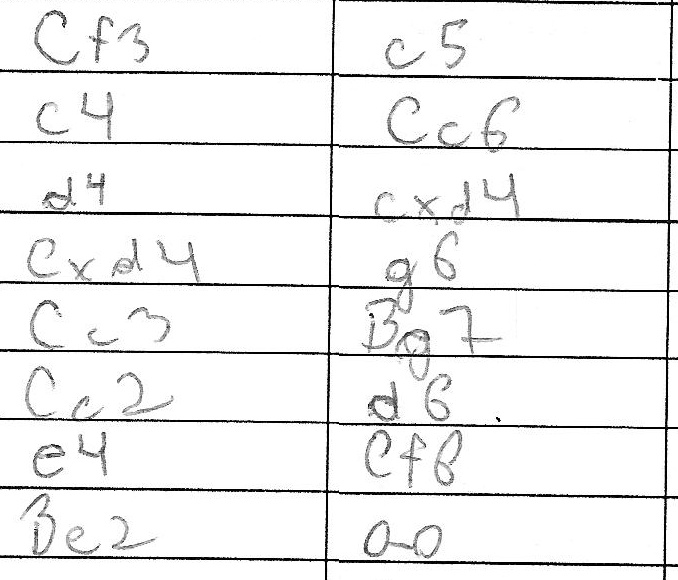 Cf3 c5
c4 Cc6
d4 cxd4
Cxd4 g6
Cc3 Bg7
Cc2 d6
e4 Cf6
Be2 0-0